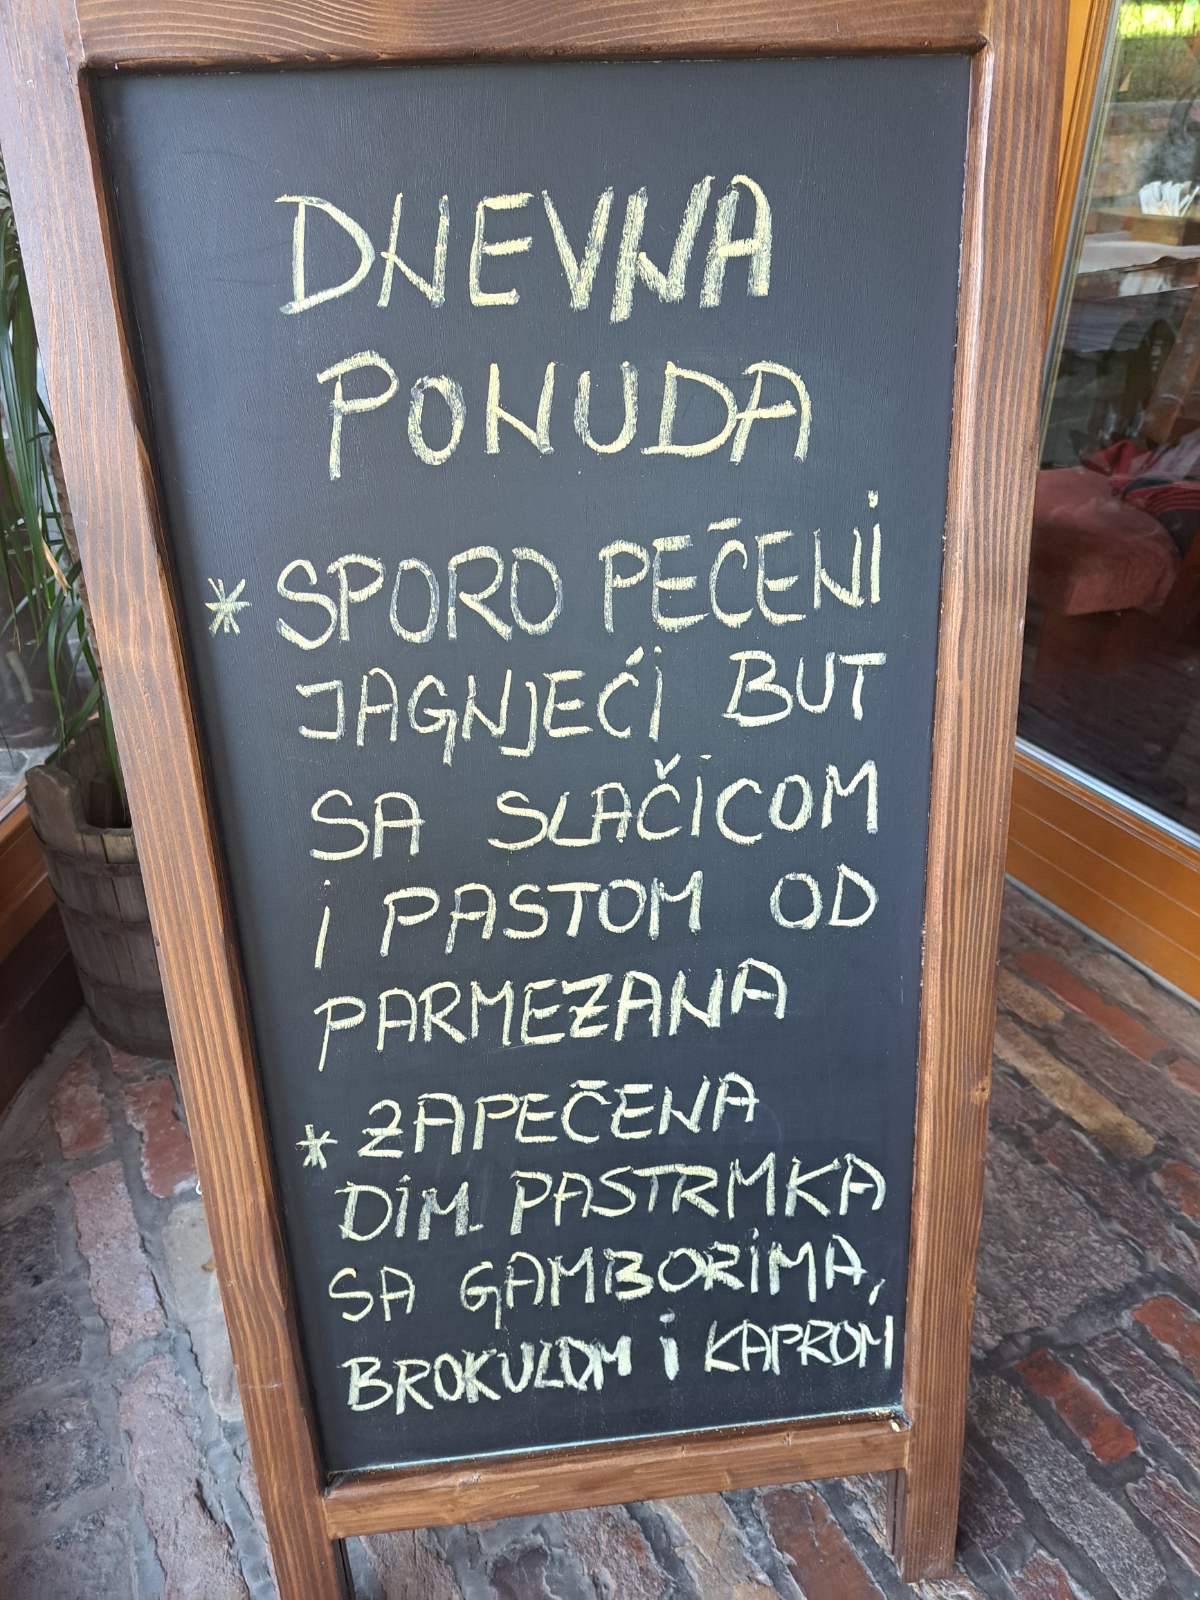 DNEVNA
PONUDA
* SPORO PEČENI
JAGNJEĆI BUT
SA SLAČICOM
I PASTOM OD
PARMEZANA
* ZAPEČENA
DIM. PASTRMKA
SA GAMBORIMA,
BROKULOM I KAPROM